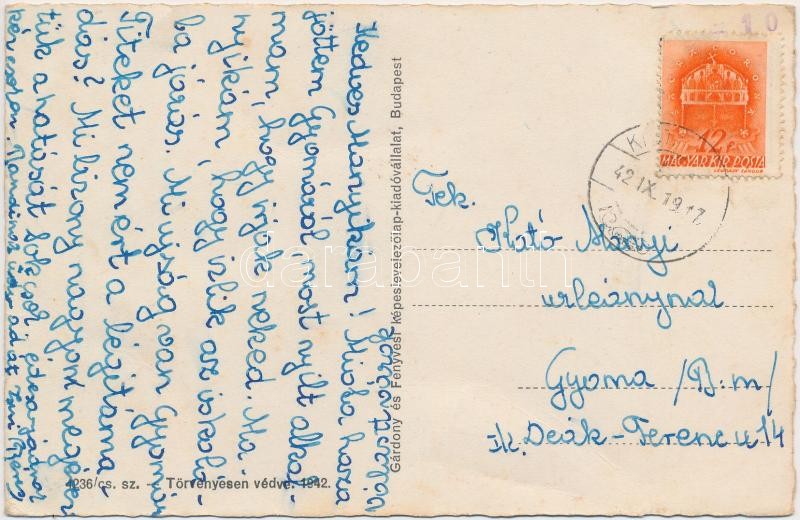 Kedves Manyikám! Mióta haza
jöttem Gyomáról most nyílt alkal-
mam, hogy írjak neked. Ma-
nyikám, hogy ízlik az iskolá-
ba járás. Mi újság van Gyomán
Titeket nem ért a légitáma-
dás? Mi bizony nagyon megérez-
tük a hatását. Sokszor
Gárdony és Fenyvesi képeslevelezőlap-kiadóvállalat, Budapest
4236/cs. sz. — Törvényesen védve. 1942.
10
MAGYAR KIR. POSTA
12 f
42 IX. 19 17
Tek.
Kató Mányi
urleánynak
Gyoma /B.m/
Deák-Ferenc u 14
darabanth